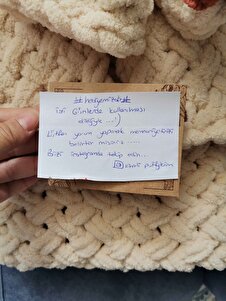 hediyemizdir
İyi Günlerde kullanılması
dileğiyle ....:)
Lütfen yorum yaparak memnuniyetinizi
belirtir misiniz .....
Bizi instagramda takip edin...